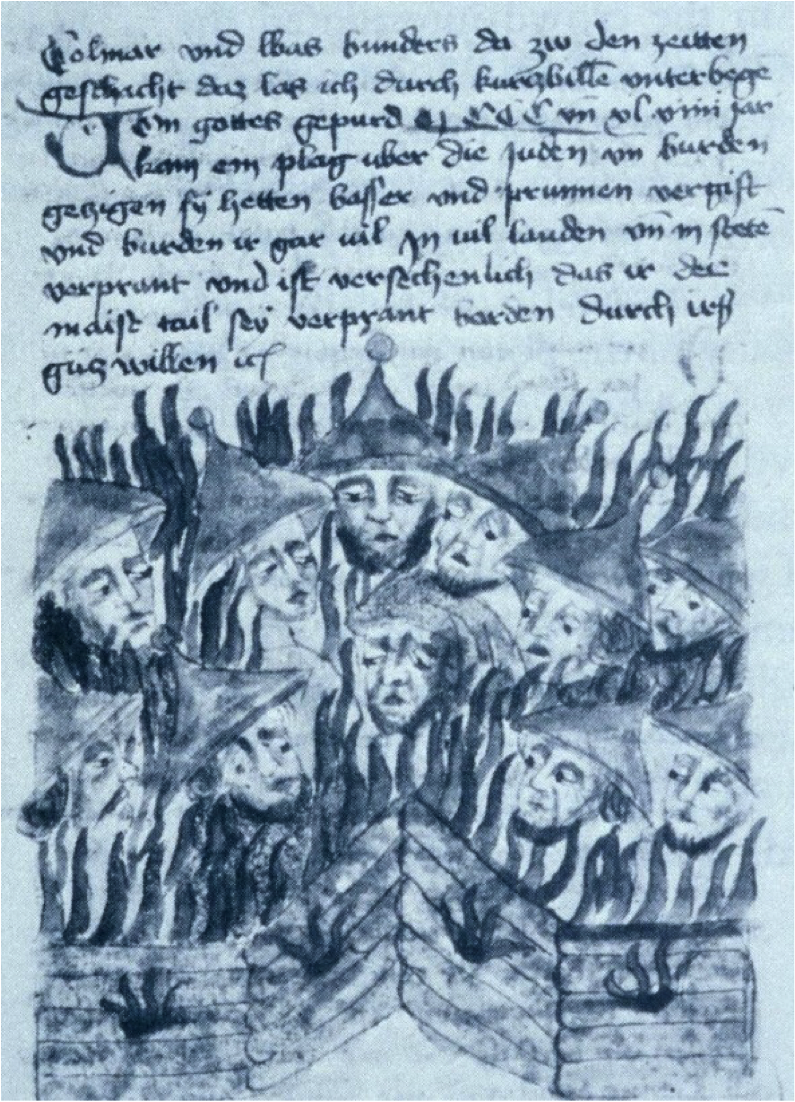 Colmar vnd was bunders da zw den zeitten
geschicht daz las ich durch kurczbille vnterbege
Item gottes gepurd M CCC vn̄ xl viiii jar
kam ein plag uber die juden vn̄ burden
geczigen sy hetten basser vnd prunnen vergift
vnd burden ir gar uil In uil landen vn̄ in stete
verprant vnd ist versechenlich das ir der
maist tail sey verprant borden durch irß
gutz willen